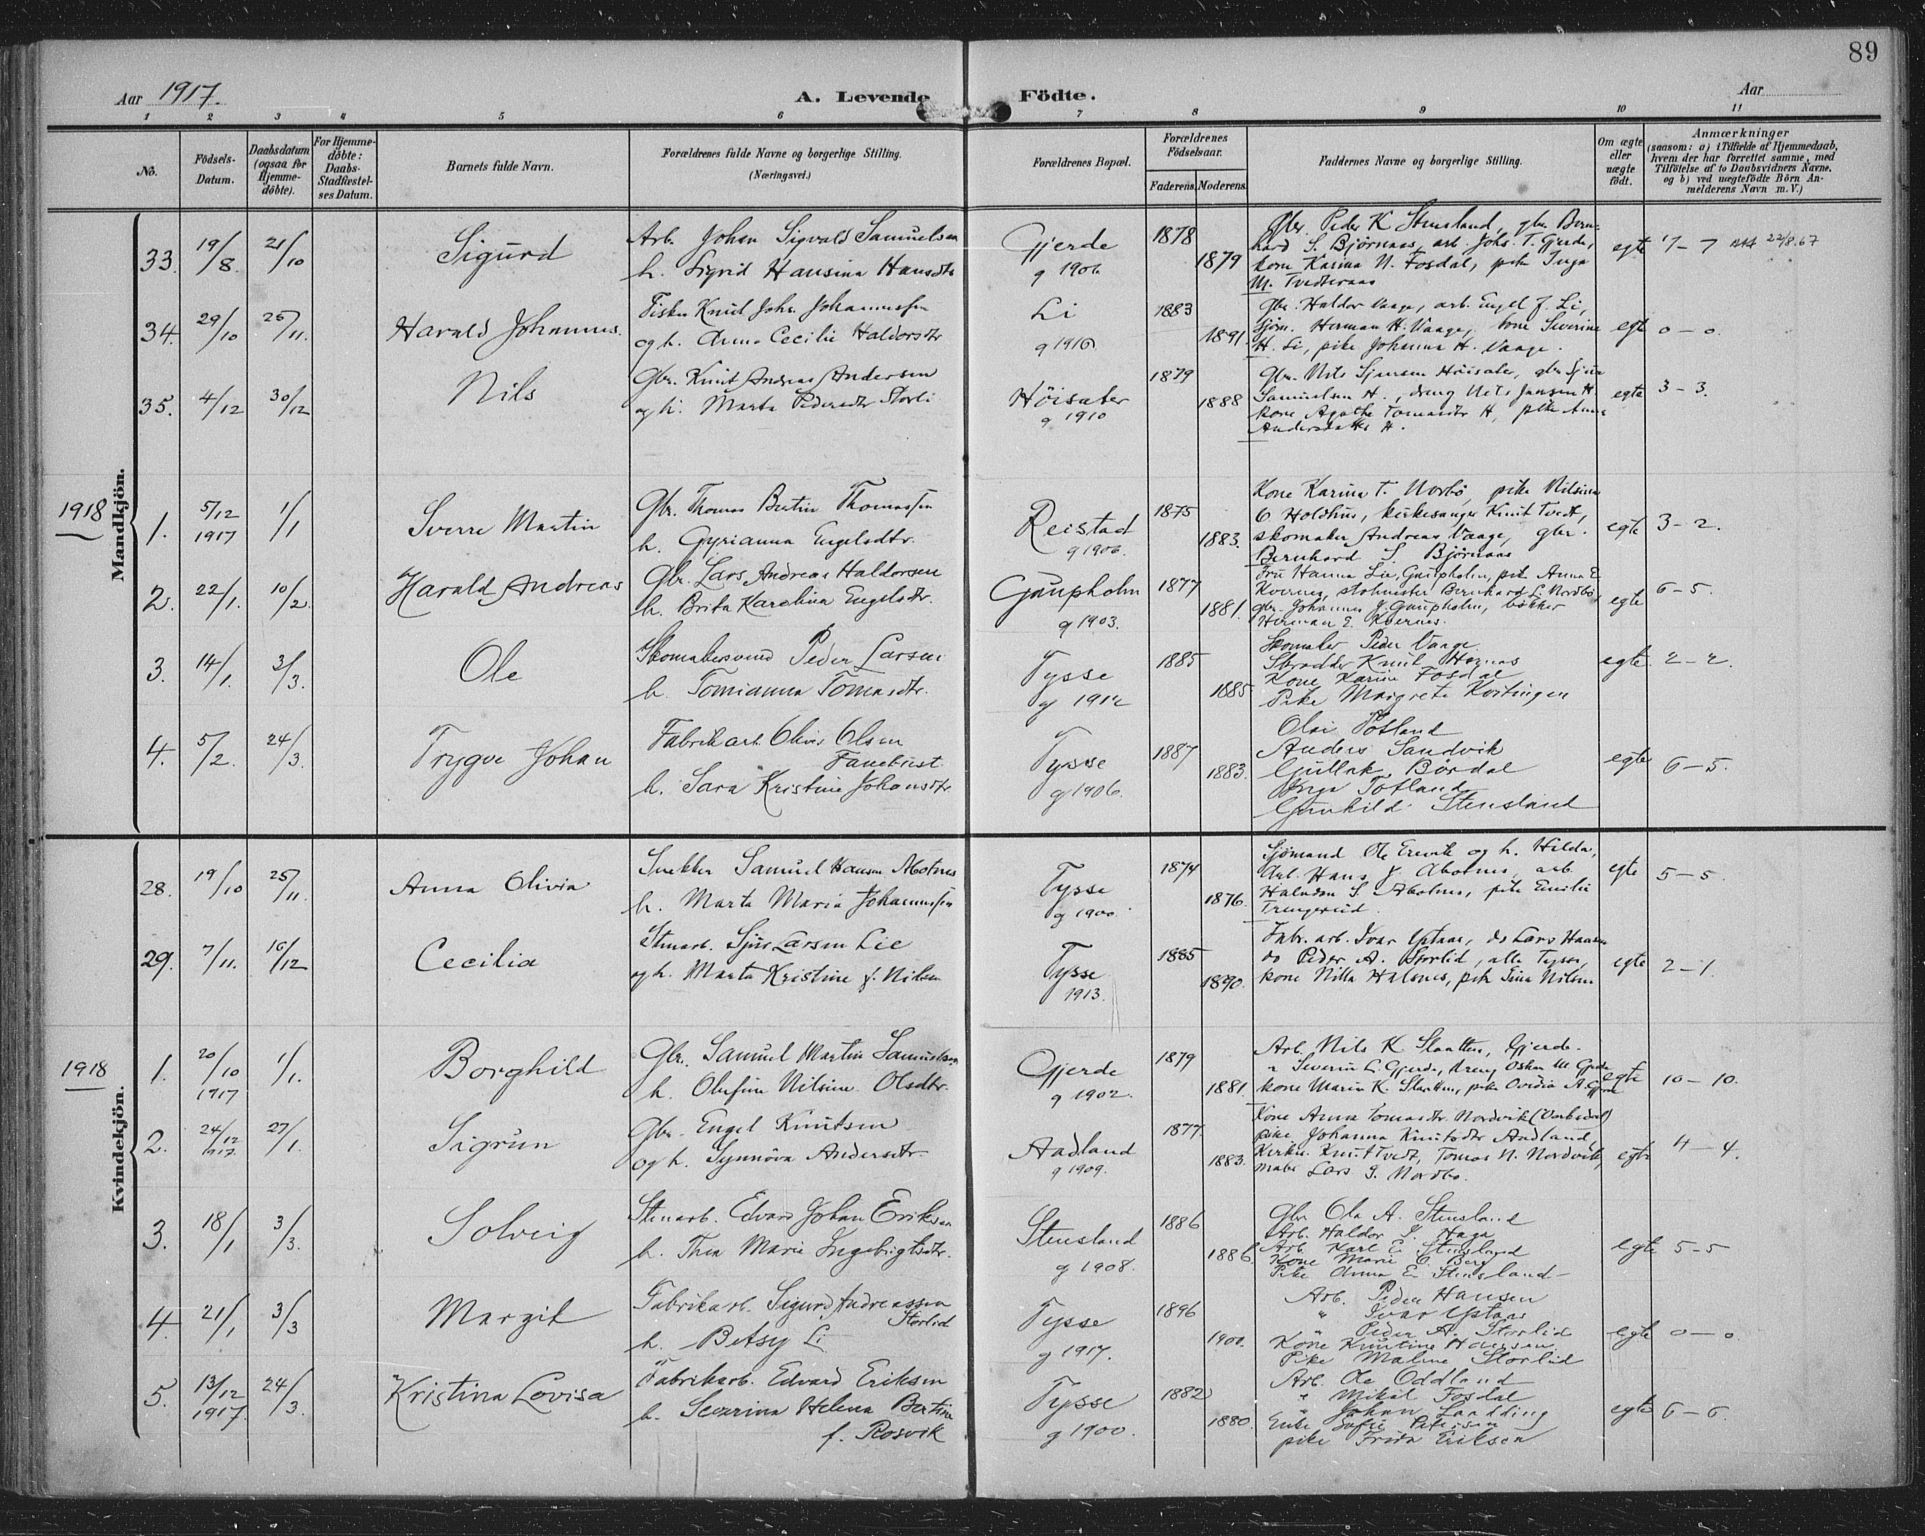 89
Aar 1917.
A. Levende Födte.
Aar
1 2 3 4 5 6 7 8 9 10 11
No.
Födsels-Datum.
Daabsdatum (ogsaa for Hjemme-döbte).
For Hjemme-döbte: Daabs-Stadfæstel-ses Datum.
Barnets fulde Navn.
Forældrenes fulde Navne og borgerlige Stilling.
(Næringsvei.)
Forældrenes Bopæl.
Forældrenes Födselsaar.
Faderens. Moderens.
Faddernes Navne og borgerlige Stilling.
Om ægte eller uægte födt.
Anmærkninger
(saasom: a) i Tilfælde af Hjemmedaab,
hvem der har forrettet samme, med
Tilföielse af to Daabsvidners Navne,
og b) ved uægtefödte Börn An-
melderens Navn m. V.)
Mandkjön.
33. 19/8 21/10 Sigurd
Arb. Johan Sigvald Samuelsen
h. Sigrid Hansina Hansdtr
Gjerde
g 1906
1878 1879
Gbr. Peder K Stensland, gbr Bern-
hard S. Björnaas, arb. Johs. T. Gjerde,
kone Karina N. Fosdal, pike Inga
M. Tvedteraas
egte 7 – 7 22/8.67
34. 29/10 25/11. Harald Johannes.
Fisker Knut Johs. Johannessen
og h. Anna Cecilie Haldorsdtr
Li
g 1916
1883 1891.
Gbr. Haldor Vaage, arb. Engel J. Li,
Sjöm. Herman H. Vaage, kone Severine
H. Li, pike Johanna H. Vaage.
egte 0 – 0.
35. 4/12 30/12 Nils
Gbr. Knut Andreas Andersen
og h. Marta Pedersdtr Storli
Höisæter
g 1910
1879 1888
Gbr. Nils Höisæter, gbr
Samuelsen H., dreng Nils Jansen H
kone Agathe Tomasdtr H, pike Anna
Andersdatter H.
egte 3 – 3.
1918
1. 5/12 1917 1/1 Sverre Martin
Gbr. Thomas Bertin Thomassen
h. Gyrianna Engelsdtr.
Reistad
g 1906.
1875 1883.
Kone Karina T. Norbö, pike Nilsina
O Holdhus, kirkesanger Knut Tvedt,
skomaker Andreas Vaage, gbr.
Bernhard S. Björnaas
egte 3 – 2.
2. 22/1. 10/2. Harald Andreas
Gbr. Lars Andreas Haldorsen
h. Brita Karolina Engelsdtr.
Gaupholm
g 1903.
1877 1881.
Fru Hanna Lie, Gaupholm, pike Anna E
Kvernes, Bernhard L. Nordbö,
gbr. Johannes J. Gaupholm, bökker
Herman E. Kvernes.
egte 6 – 5.
3. 14/1. 3/3. Ole
Skomakersvend Peder Larsen
h. Tomianna Tomasdtr.
Tysse
g 1912
1885 1885
Skomaker Peder Vaage
Skrædder Knut
Kone Karine Fosdal
Pike Margrete Kvitingen
egte 2 – 2.
4. 5/2. 24/3. Trygve Johan
Fabrikarb. Oliver Olsen
h. Sara Kristine Johansdtr.
Tysse
g 1906.
1887 1883.
Olai Totland
Anders Sandvik
Gullak Bördal
Inga Totland
Gunhild Stensland
egte 6 – 5.
Kvindekjön.
28. 19/10 25/11. Anna Olivia
Snekker Samuel Hansen Abotnes
h. Marta Maria Johannessen
Tysse
g 1900.
1874 1876.
Sjömand Ole og h. Hilda,
Arb. Hans J. Abotnes, arb
S. Abotnes, pike Emilie
egte 5 – 5.
29. 7/11. 16/12 Cecilia
Stenarb. Sjur Larsen Lie
og h. Marta Kristine f. Nilsen
Tysse
1913.
1885 1890.
Fabr. arb. Ivar Ystaas, do Lars Hansen
do Peder A. Storlid, alle Tysse,
kone Nilla Halsnes, pike Sina Nilsen
egte 2 – 1.
1918
1. 20/10 1917 1/1. Borghild
Gbr. Samuel Martin Samuelsen
h. Olufine Nilsine Olsdtr.
Gjerde
g 1902.
1879 1881.
Arb. Nils K Slaatten, Gjerde.
" Severin L. Gjerde, dreng Oskar M Gjerde
kone Maria K. Slaatten, pike Ovidia A. Gjerde
egte 10 – 10.
2. 24/12 1917. 27/1. Sigrun
Gbr. Engel Knutsen
og h. Synnöva Andersdtr.
Aadland
g 1909.
1877. 1883.
Kone Anna Tomasdtr. Nordvik
pike Johanna Knutsdtr Aadland,
Kirkes. Knut Tvedt, Tomas N. Nordvik,
Lars G. Nordbö.
egte 4 – 4.
3. 18/1 3/3. Solveig
Stenarb. Edvard Johan Eriksen
h. Thea Marie Ingebrigtsdtr.
Stensland
g 1908.
1886 1886
Gbr Ola A. Stensland
Arb. Haldor S. Haga
Arb. Karl E. Stensland
Kone Marie O. Berg
Pike Anna E. Stensland
egte 5 – 5
4. 21/1 3/3 Margit
Fabrikarb. Sigurd Andreassen Storlid
h. Betsy Li
Tysse
g 1917.
1896 1900.
Arb. Peder Hansen
" Ivar Ystaas
" Peder A. Storlid
Kone Knutine Hansen
Pike Malene Storlid
egte 0 – 0
5. 13/12 1917. 24/3. Kristina Lovisa
Fabrikarb. Edvard Eriksen
h. Severina Helena Bertine
f. Rosvik
Tysse
g 1900.
1882 1880.
Arb. Ole Oddland
" Mikal Fosdal
" Johan
Enke Sofie Petersen
pike Frida Eriksen
egte 6 – 6.